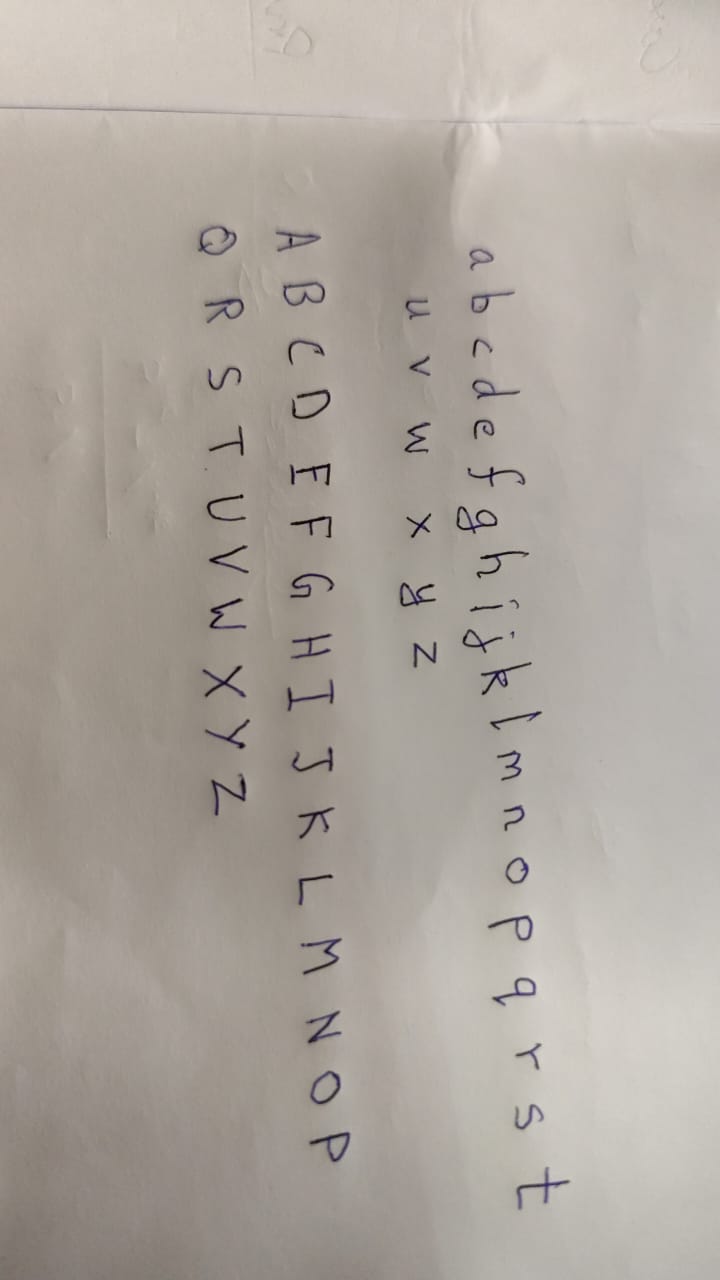 a b c d e f g h i j k l m n o p q r s t
u v w x y z
A B C D E F G H I J K L M N O P
Q R S T U V W X Y Z